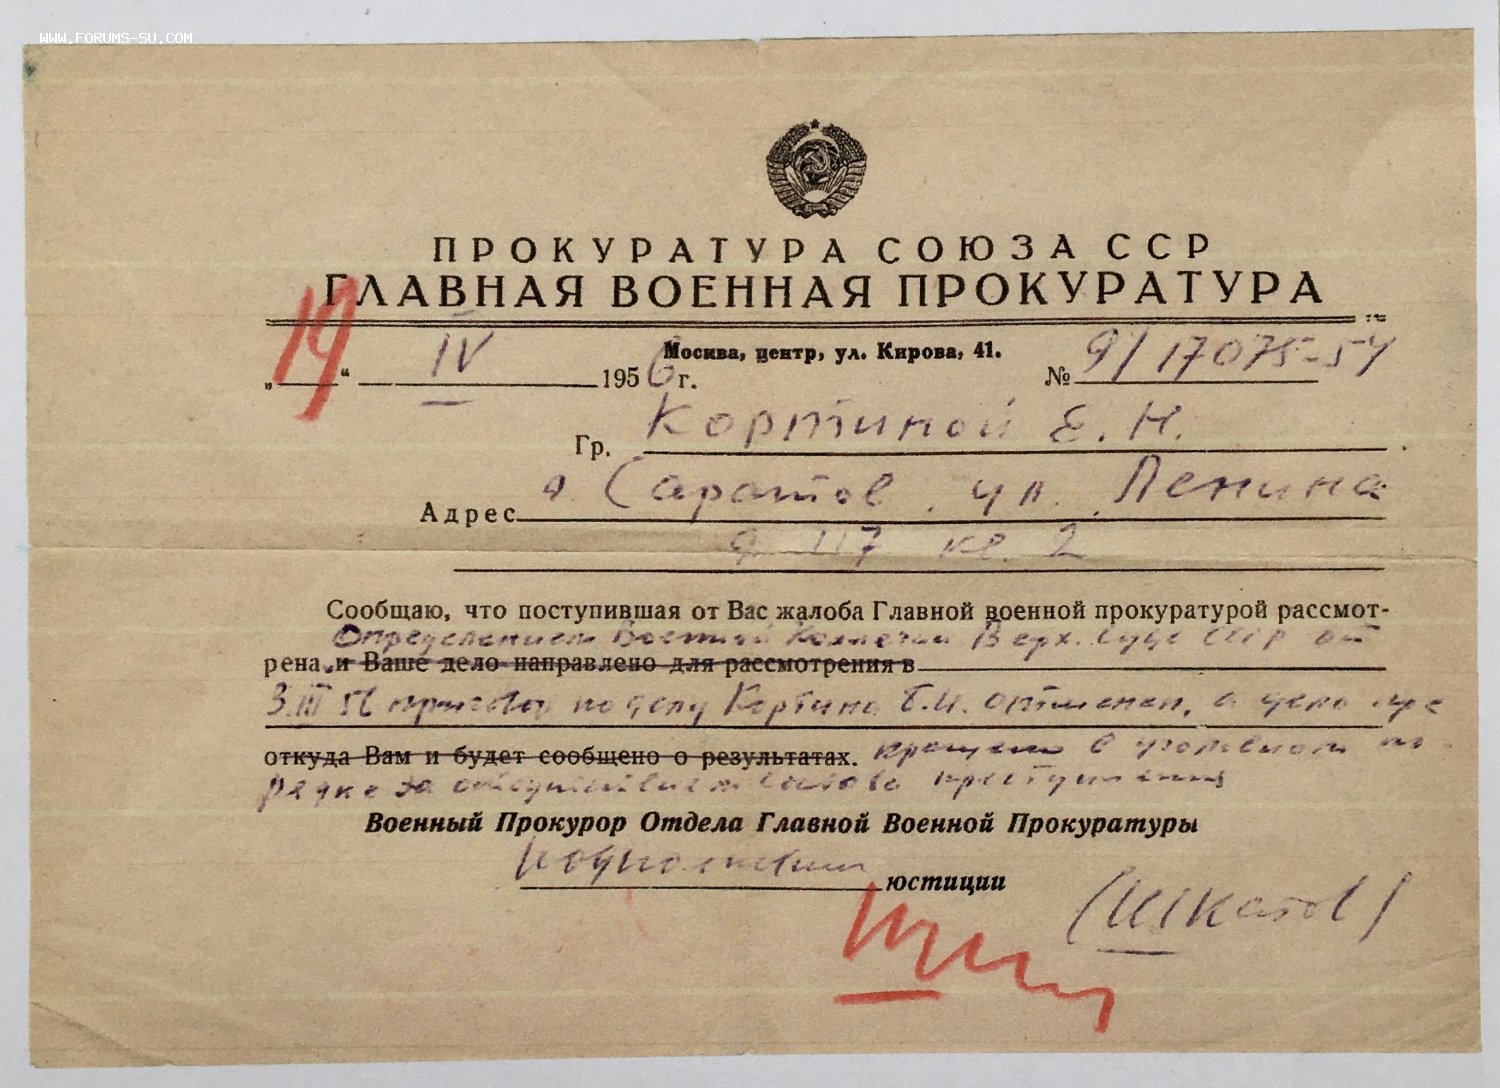 WWW.FORUMS-SU.COM
ПРОКУРАТУРА СОЮЗА ССР
ГЛАВНАЯ ВОЕННАЯ ПРОКУРАТУРА
Москва, центр, ул. Кирова, 41.
„19“ IV 1956 г. № 9/17075-54
Гр. Кортиной Е. Н.
Адрес г. Саратов, ул. Ленина
д 117 кв. 2
Сообщаю, что поступившая от Вас жалоба Главной военной прокуратурой рассмот-
Определением Военной Коллегии Верх. Суда СССР от
рена, и Ваше дело направлено для рассмотрения в
3.III 56 приговор по делу отменен, а дело пре
откуда Вам и будет сообщено о результатах. кращено в уголовном по-
рядке за отсутствием состава преступления
Военный Прокурор Отдела Главной Военной Прокуратуры
подполковник юстиции
(Шкатов)